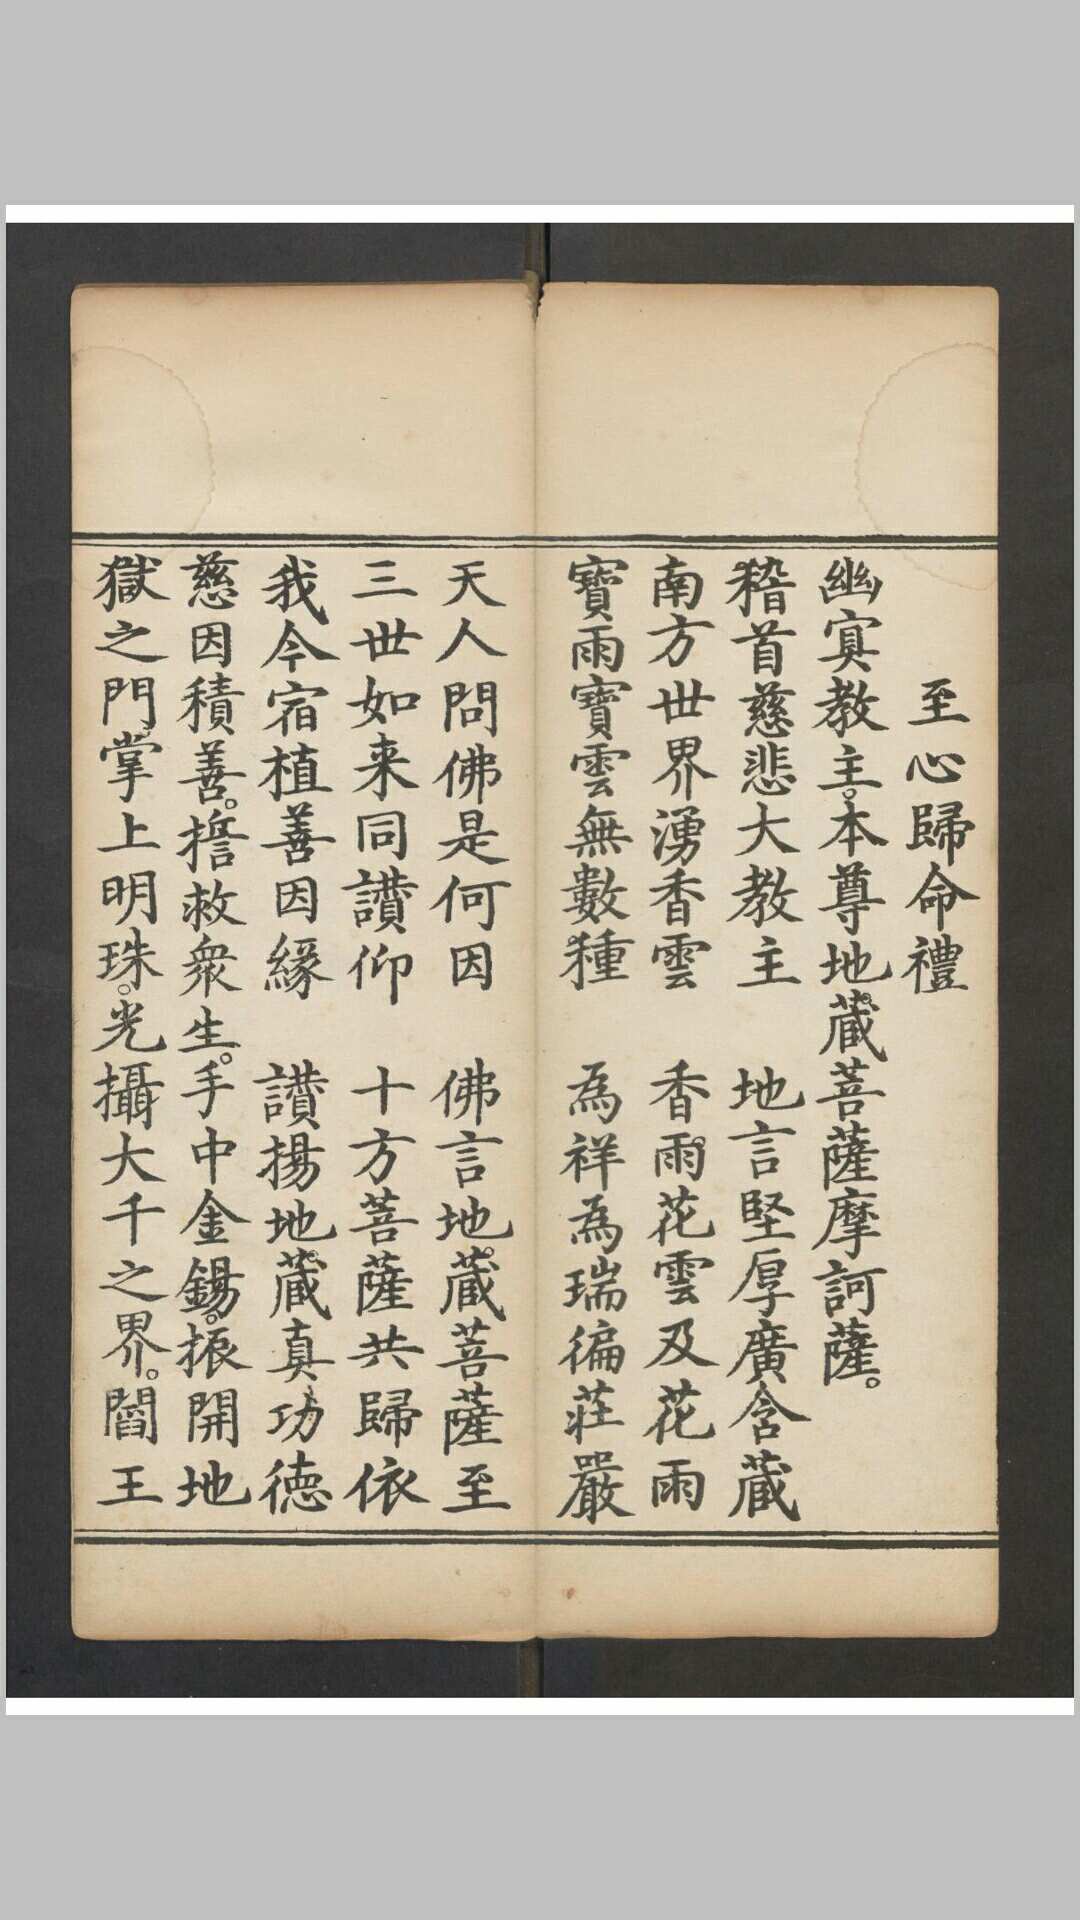 至心歸命禮
幽冥教主。本尊地藏菩薩摩訶薩。
稽首慈悲大教主　地言堅厚廣含藏
南方世界湧香雲　香雨花雲及花雨
寶雨寶雲無數種　為祥為瑞徧莊嚴
天人問佛是何因　佛言地藏菩薩至
三世如来同讚仰　十方菩薩共歸依
我今宿植善因緣　讚揚地藏真功德
慈因積善。誓救衆生。手中金錫。振開地
獄之門。掌上明珠。光攝大千之界。閻王